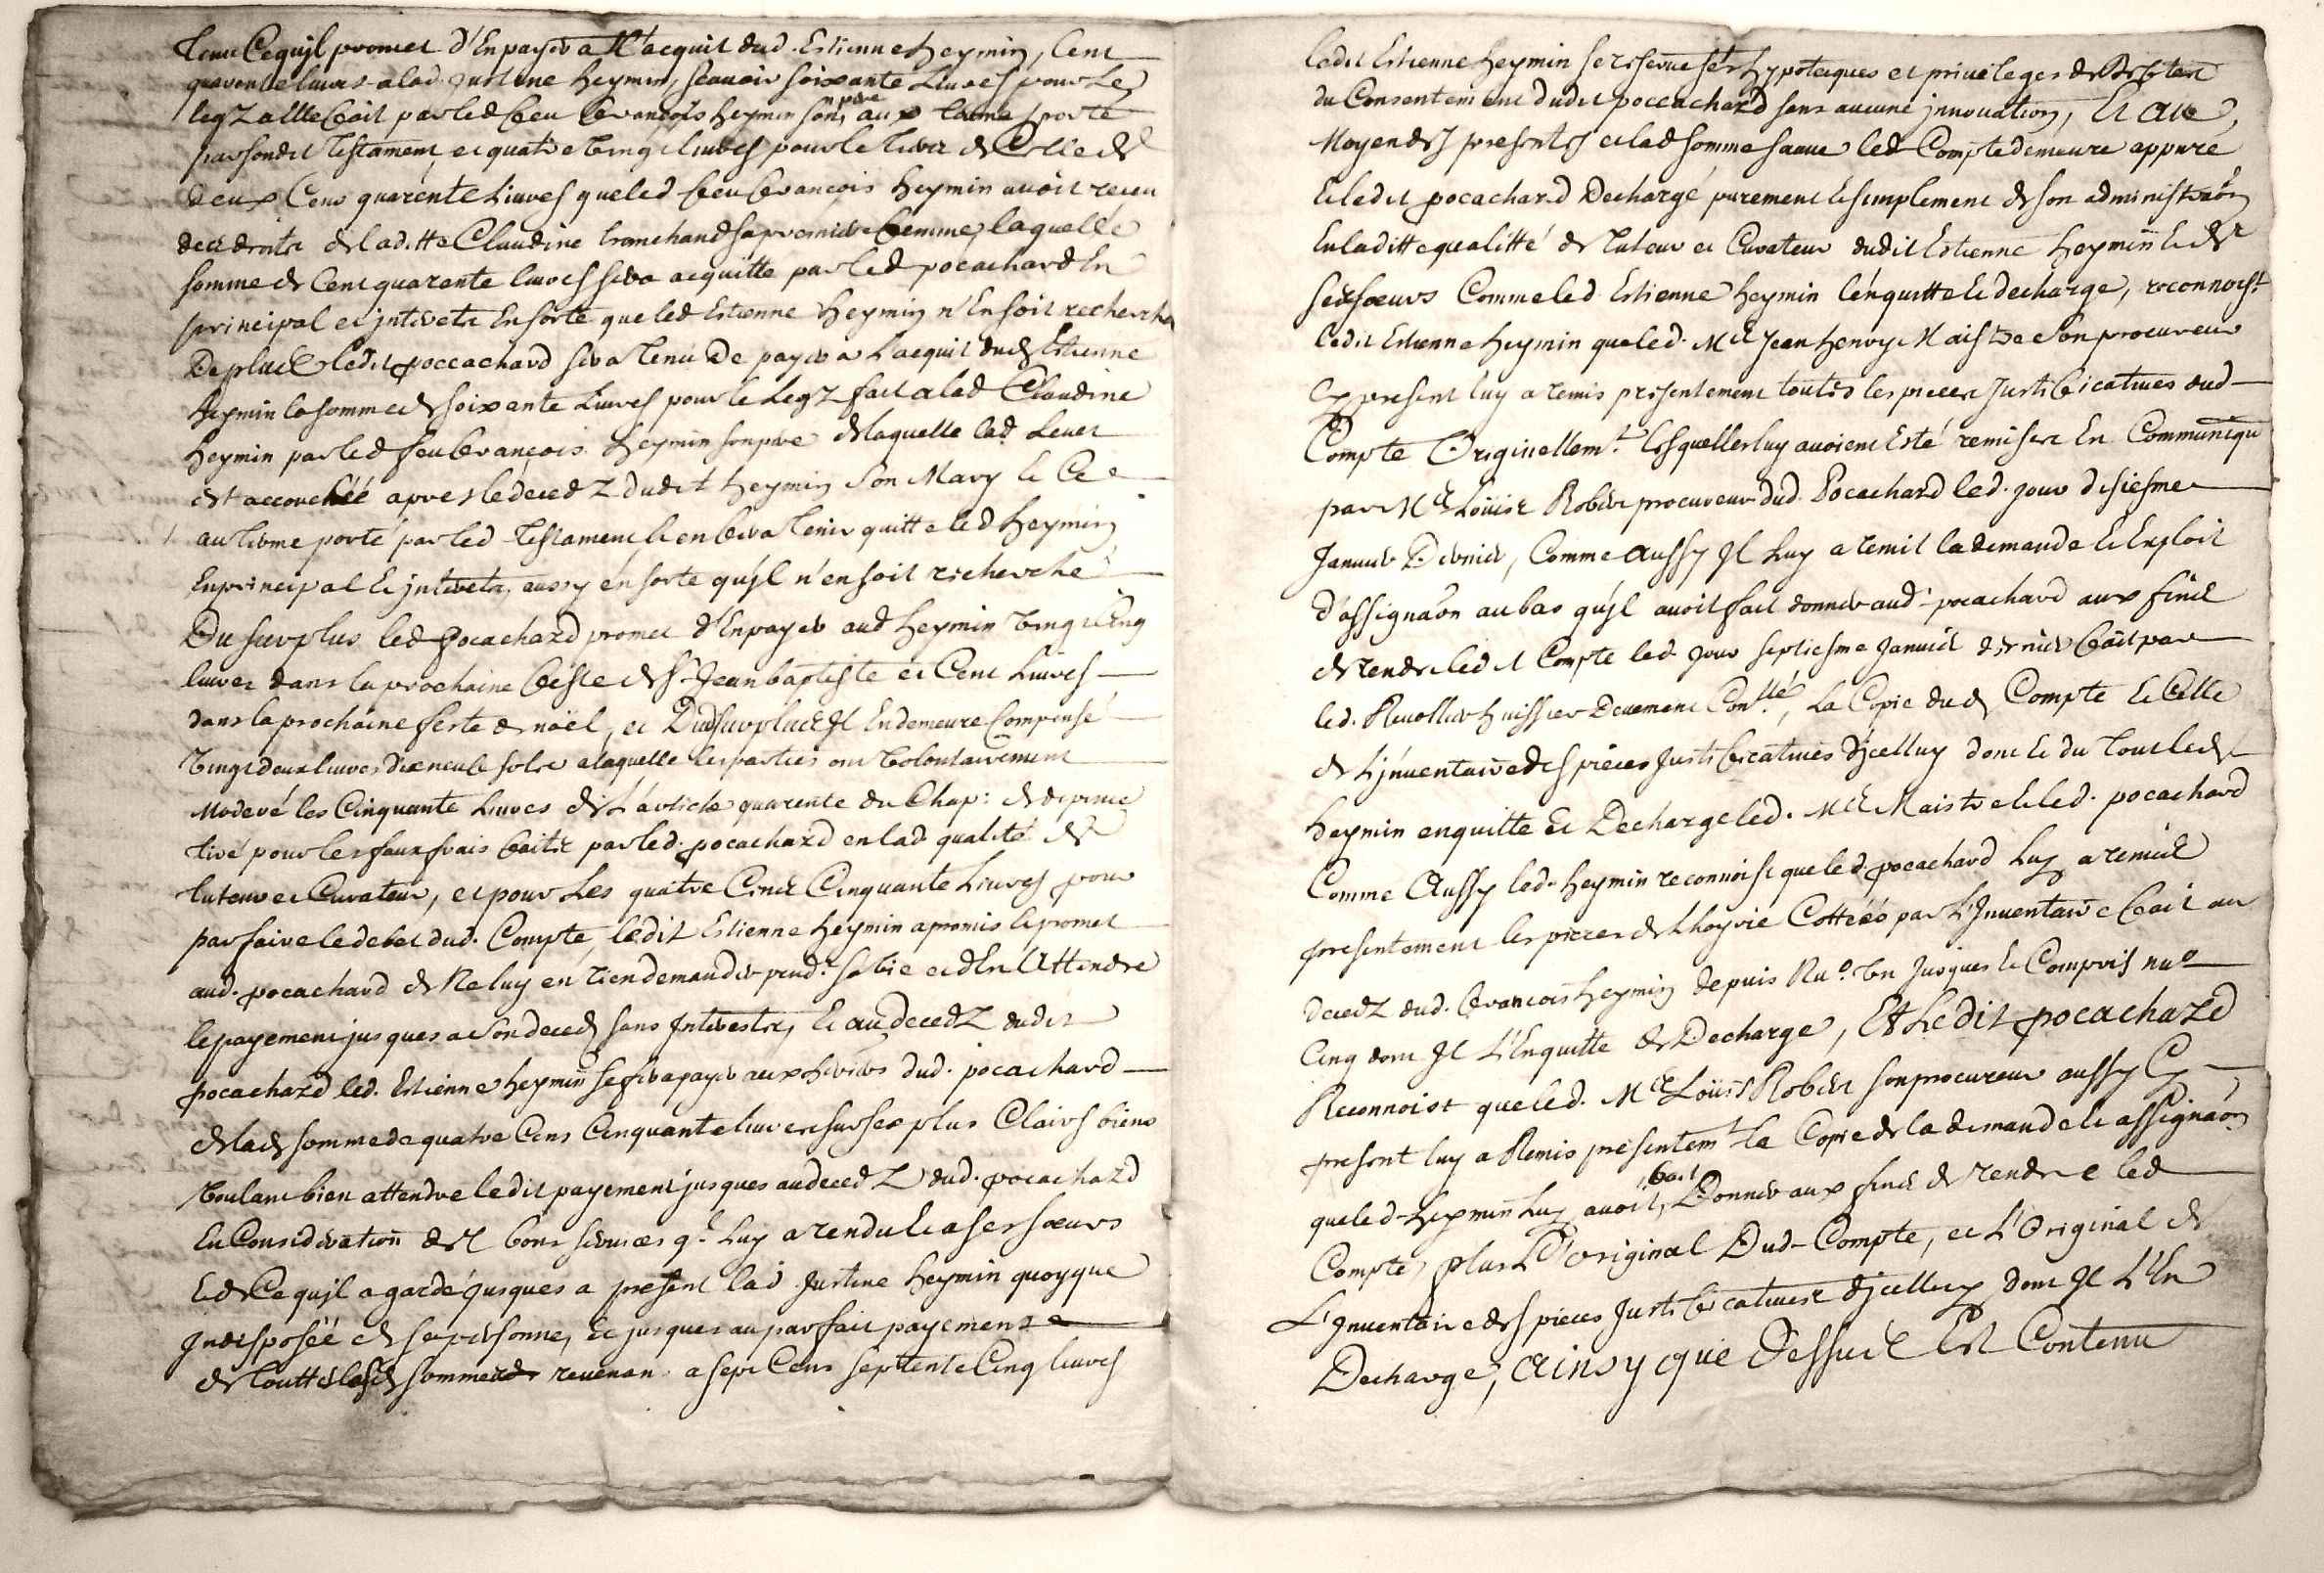 tenu Cequjl promet d'Enpayer a l'acquit dud. Estienne heymin, Cent
quarente livres alad. Justine heymin, scauoir soixante Liures pour Le
legz a elle fait par led feu francois heymin son pere aux terme porté
par sondit testament, et quatre vingt liures pour le tiers de Celle de
deux Cens quarente Liures que led feu francois heymin auoit receu
des droits de laditte Claudine tranchand sa premiere femme, laquelle
somme de Cent quarante liures sera acquitte par led pocachard En
principal et jnterets En sorte que led Estienne heymin n'En soit recherché
De plus ledit poccachard sera tenu De payer a L'acquit dud Estienne
heymin la somme de soixante Liures pour le Legz fait alad Claudine
heymin par led feu francois heymin son pere de laquelle lad
est accouchéé apres le decedz dudit heymin Son Mary le Ce
au terme porté par led testament et en fera tenir quitte led heymin
En principal et jnterets, aussy en sorte qu'jl n'en soit recherché
Du surplus led pocachard promet d'En payer aud heymin vingt Cinq
liures dans la prochaine feste de St Jean baptiste et Cent Liures
dans la prochaine feste de noël, et Dud surplus Jl En demeure Compensé
vingt deux liures dix neuf solz a laquelle les parties ont volontairement
Moderé les Cinquante Liures de L'article quarente du Chap: de depence
tiré pour les faux frais faits par led. pocachard en lad qualité de
tuteur et Curateur, et pour Les quatre Cens Cinquante Liures pour
parfaire le debet dud. Compte, ledit Estienne heymin a promis et promet
aud. pocachard de Ne luy en rien demander pendt. sa vie et d'En Attendre
le payement jusques a Son deced sans Jnterests, Et au decedz dudit
pocachard led. Estienne heymin se fera payer aux heritiers dud. pocachard
de lad somme de quatre Cens Cinquante liures sur ses plus Clairs biens
voulant bien attendre ledit payement jusques au decedz dud. pocachard
En Consideration des bons seruices q. Luy a rendu et a ses soeurs
Et de Ce qujl a gardé jusques a present lad Justine heymin quoyque
Jndisposéé de sa personne, Et jusques au parfait payement
de touttes lesd sommes revenan a sept Cens septente Cinq liures
ledit Estienne heymin se reserue ses hypoteques et priuileges
du Consentement dudit poccachard sans aucune jnnouation, Et au
Moyen des presentes et lad somme sauue led Compte demeure appuré
Et ledit pocachard Dechargé purement et simplement de son administraon
En laditte qualitté de tuteur et Curateur dudit Estienne heymin et de
ses soeurs Comme led Estienne heymin l'enquitte et decharge, reconnoist
Ledit Estienne heymin que led. Me Jean henry Maistre Son procureur
Cy present luy a remis presentement toutes les pieces Justificatiues dud
Compte Originellemt. lesquelles luy auoient Esté remises En Communiqu
par Me Louis Robert procureur dud. Pocachard led. jour disiesme
Januier Dernier, Comme aussy Jl Luy a remit la demande et Exploit
d'assignaon au bas qu'jl auoit fait donner aud. pocachard aux fins
de rendre led Compte led jour septiesme Januier dernier fait par
led. huissier Deuement Conllé, La Copie dud Compte et Celle
de L'jnuentaire des pieces Justificatiues d'jcelluy dont et du tout led
heymin enquitte et Decharge led. Me Maistre et led. pocachard
Comme Aussy led. heymin reconnoist que led pocachard Luy a remis
presentement les pieces de L'hoyrie Cottéés par L'Jnuentaire fait au
decedz dud. francois heymin depuis Nuo. Vn Jusques et Compris nuo
Cinq dont Jl L'Enquitte et Decharge, Et Ledit pocachard
Reconnoist que led. Me Loüis Robert son procureur aussy Cy
present luy a Remis presentemt la Copie de la demande et assignaon
que led heymin Luy auoit fait Donner aux fins de rendre led
Compte, plus L'original Dud Compte, et L'Original de
L'Jnuentaire des pieces Justificatiues d'jcelluy dont Jl L'En
Decharge, Ainsy que Dessus Est Contenu